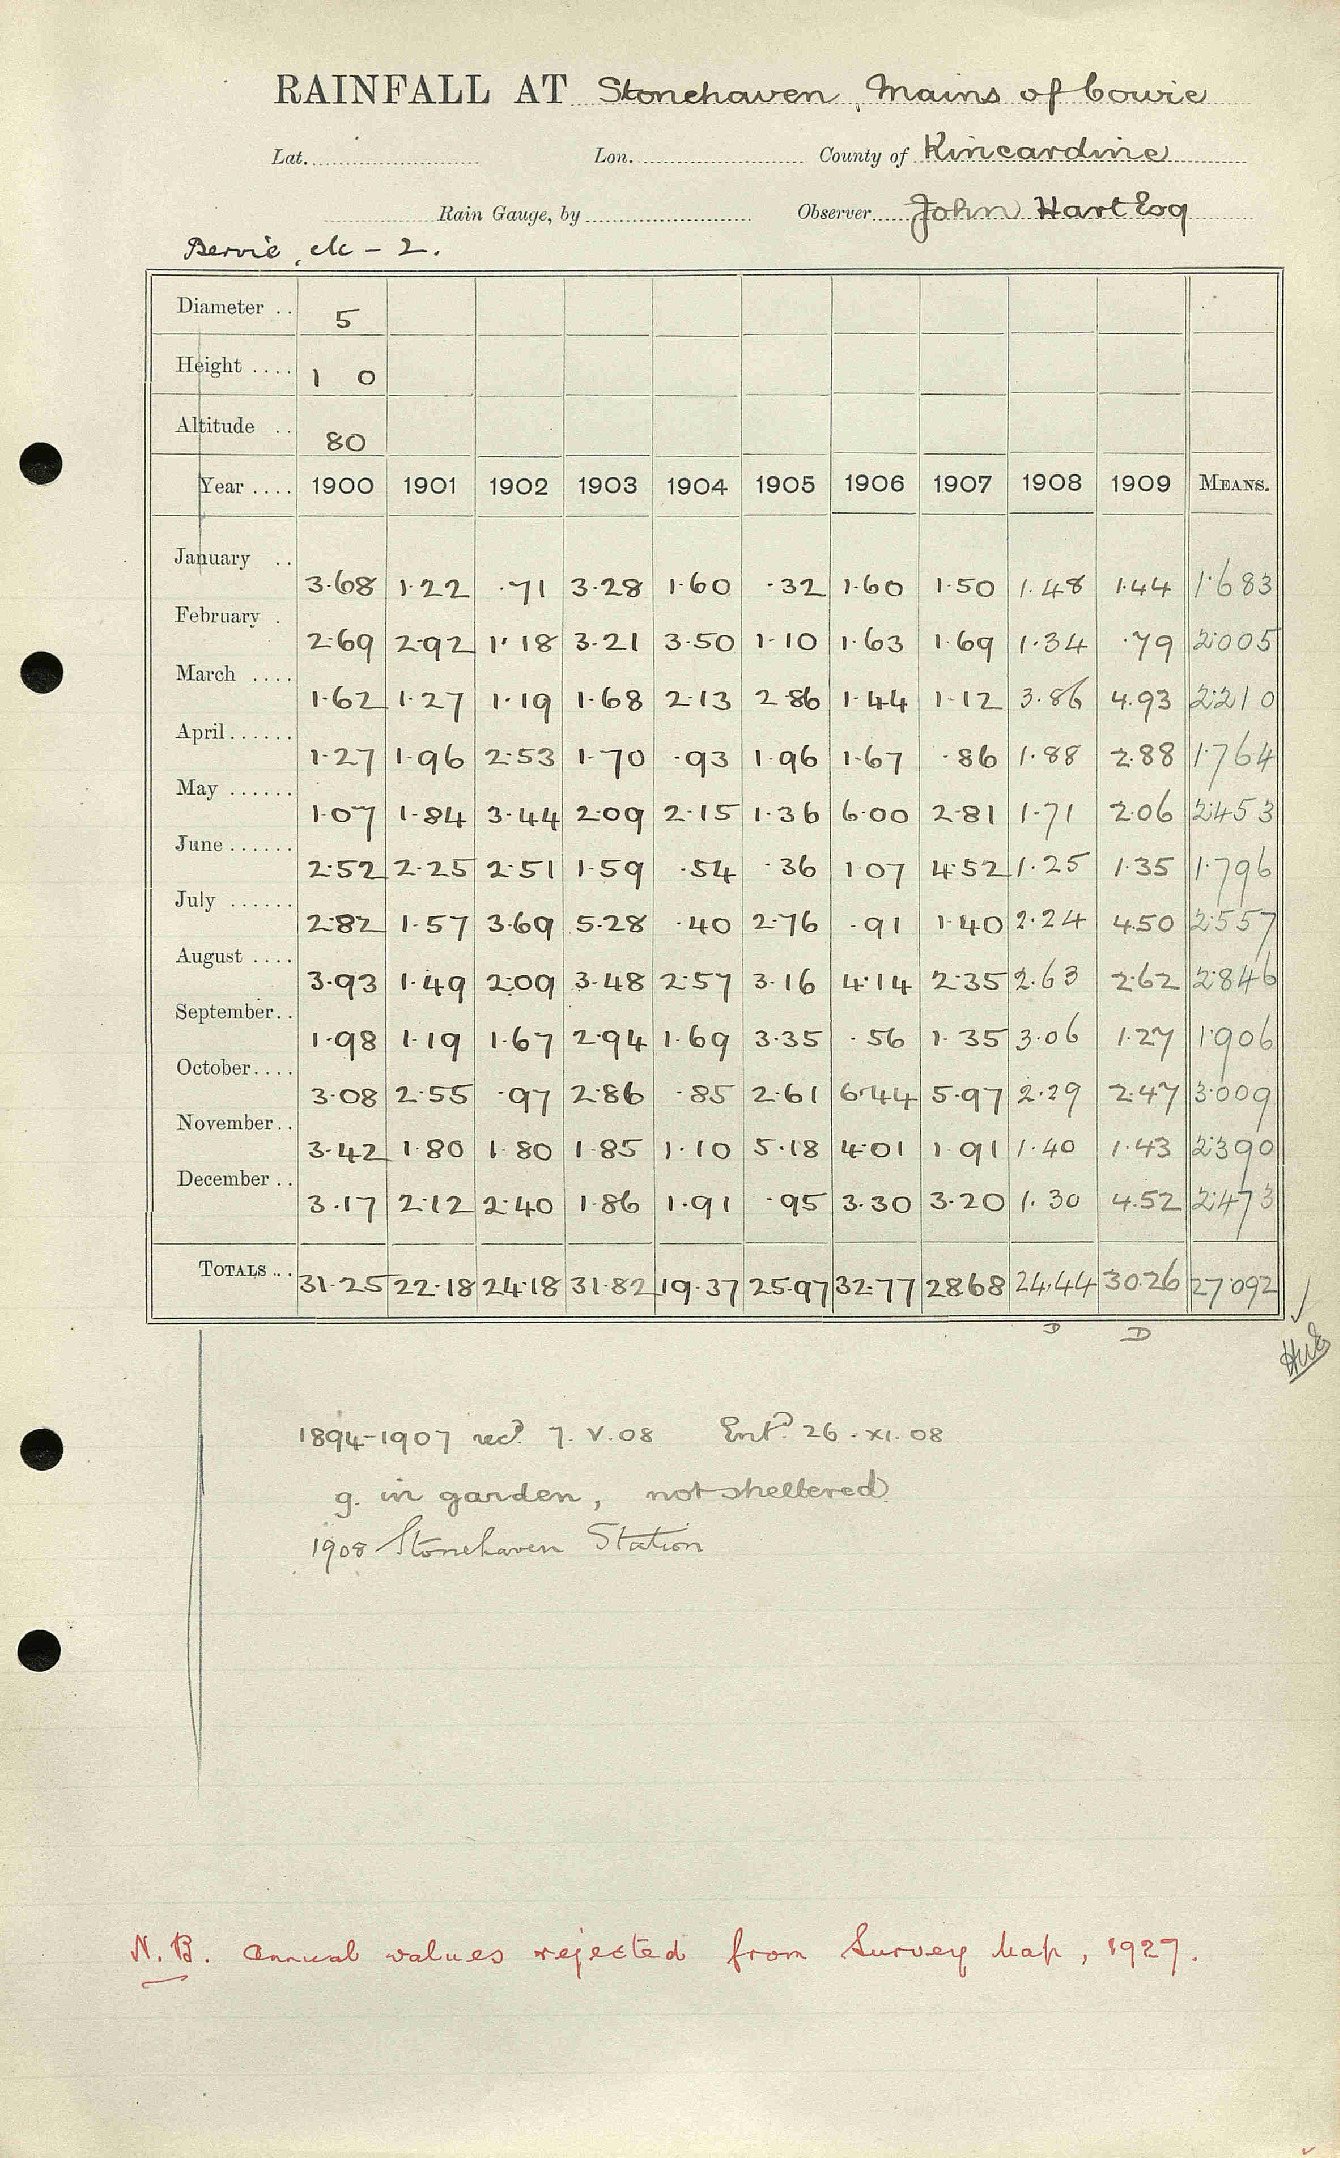 RAINFALL AT Stonehaven, Mains of Cowie
Lat. Lon. County of Kincardine
Rain Gauge, by Observer John Hart Esq
Bervie, etc - 2.
Diameter .. 5
Height .... 1 0
Altitude .. 80
Year .... 1900 1901 1902 1903 1904 1905 1906 1907 1908 1909 MEANS.
January .. 3.68 1.22 .71 3.28 1.60 .32 1.60 1.50 1.48 1.44 1.683
February . 2.69 2.92 1.18 3.21 3.50 1.10 1.63 1.69 1.34 .79 2.005
March .... 1.62 1.27 1.19 1.68 2.13 2.86 1.44 1.12 3.86 4.93 2.210
April ...... 1.27 1.96 2.53 1.70 .93 1.96 1.67 .86 1.88 2.88 1.764
May ...... 1.07 1.84 3.44 2.09 2.15 1.36 6.00 2.81 1.71 2.06 2.453
June ...... 2.52 2.25 2.51 1.59 .54 .36 1.07 4.52 1.25 1.35 1.796
July ...... 2.82 1.57 3.69 5.28 .40 2.76 .91 1.40 2.24 4.50 2.557
August .... 3.93 1.49 2.09 3.48 2.57 3.16 4.14 2.35 2.63 2.62 2.846
September.. 1.98 1.19 1.67 2.94 1.69 3.35 .56 1.35 3.06 1.27 1.906
October.... 3.08 2.55 .97 2.86 .85 2.61 6.44 5.97 2.29 2.47 3.009
November.. 3.42 1.80 1.80 1.85 1.10 5.18 4.01 1.91 1.40 1.43 2.390
December .. 3.17 2.12 2.40 1.86 1.91 .95 3.30 3.20 1.30 4.52 2.473
TOTALS ... 31.25 22.18 24.18 31.82 19.37 25.97 32.77 28.68 24.44 30.26 27.092
D D
1894-1907 recd. 7.V.08 Entd. 26.XI.08
g. in garden, not sheltered
1908 Stonehaven Station
N.B. Annual values rejected from Survey Map, 1927.